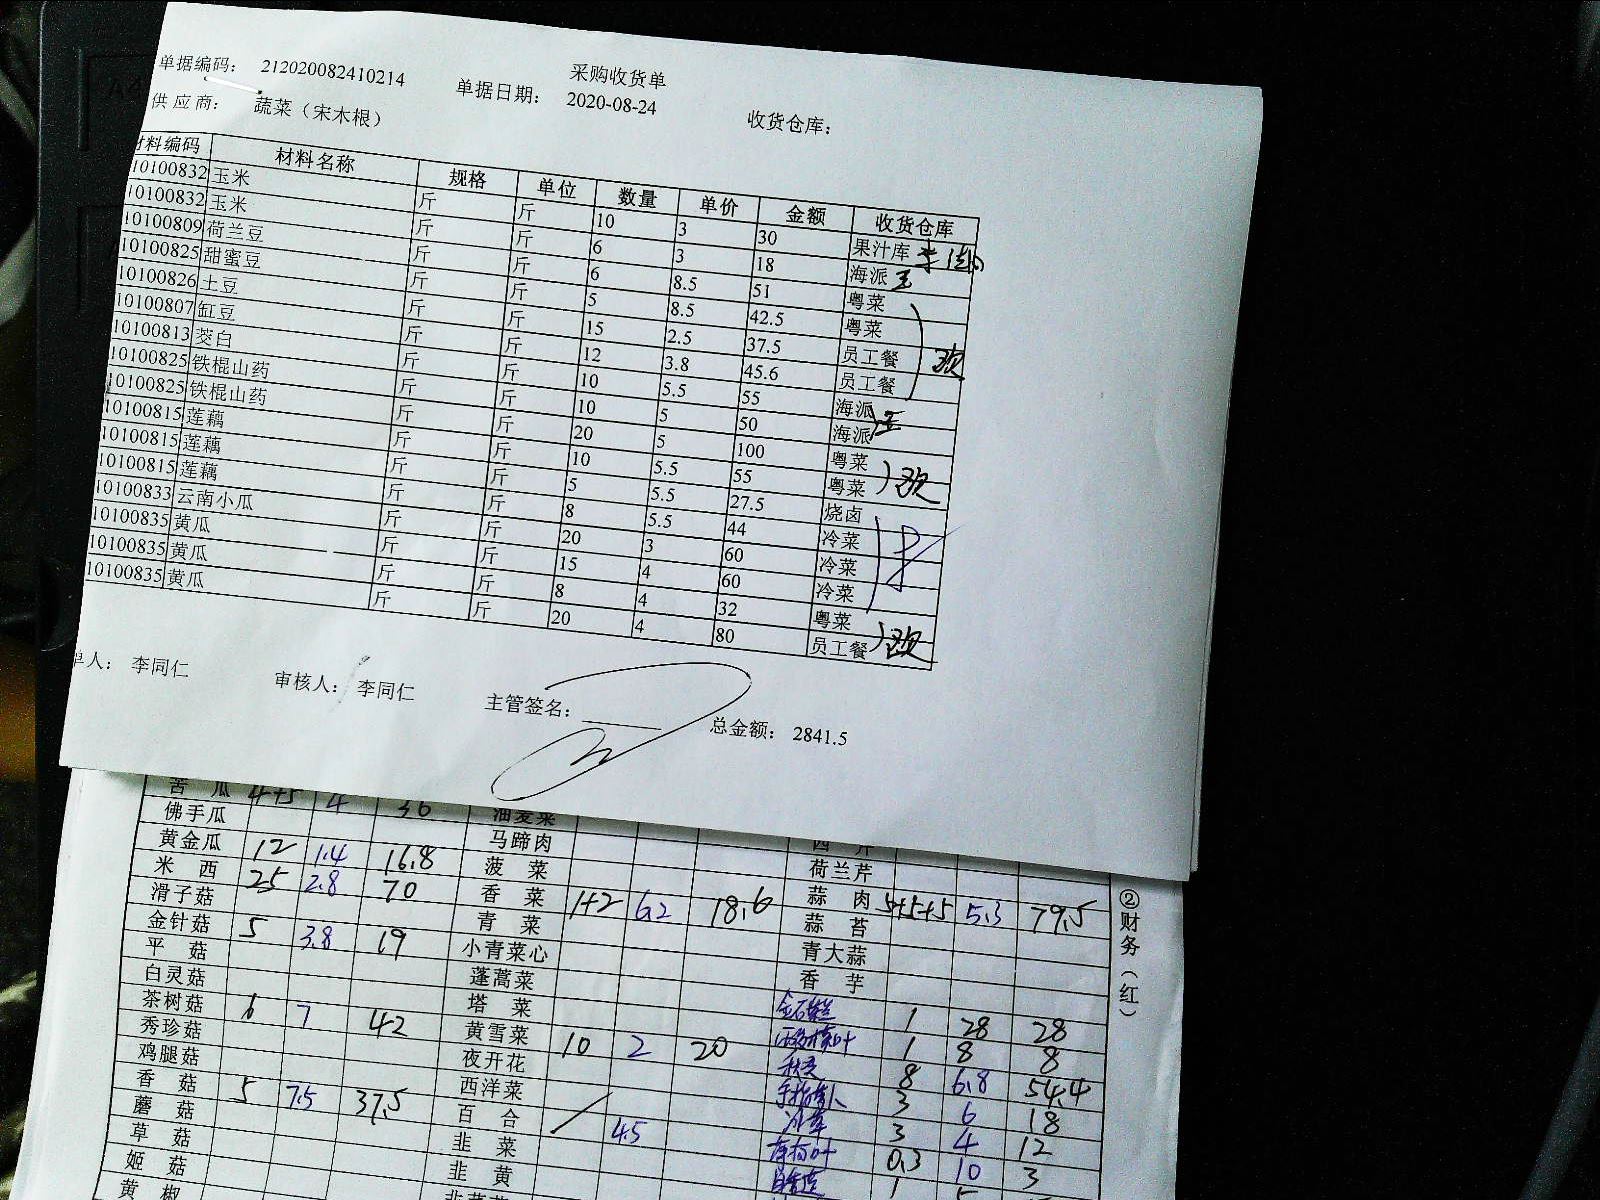 采购收货单
单据编码： 212020082410214 单据日期： 2020-08-24 收货仓库：
供应商： 蔬菜（宋木根）
材料编码 材料名称 规格 单位 数量 单价 金额 收货仓库
10100832 玉米 斤 斤 10 3 30 果汁库
10100832 玉米 斤 斤 6 3 18 海派 王
10100809 荷兰豆 斤 斤 6 8.5 51 粤菜
10100825 甜蜜豆 斤 斤 5 8.5 42.5 粤菜
10100826 土豆 斤 斤 15 2.5 37.5 员工餐
10100807 缸豆 斤 斤 12 3.8 45.6 员工餐
10100813 茭白 斤 斤 10 5.5 55 海派
10100825 铁棍山药 斤 斤 10 5 50 海派
10100825 铁棍山药 斤 斤 20 5 100 粤菜
10100815 莲藕 斤 斤 10 5.5 55 粤菜
10100815 莲藕 斤 斤 5 5.5 27.5 烧卤
10100815 莲藕 斤 斤 8 5.5 44 冷菜
10100833 云南小瓜 斤 斤 20 3 60 冷菜
10100835 黄瓜 斤 斤 15 4 60 冷菜
10100835 黄瓜 斤 斤 8 4 32 粤菜
10100835 黄瓜 斤 斤 20 4 80 员工餐
单人： 李同仁 审核人： 李同仁 主管签名： 总金额： 2841.5
苦 瓜 4+5 4 36 油麦菜 西 芹
佛手瓜 马蹄肉 荷兰芹
黄金瓜 12 1.4 16.8 菠 菜 蒜 肉 5+5+5 5.3 79.5
米 西 25 2.8 70 香 菜 1+2 6.2 18.6 蒜 苔
滑子菇 青 菜 青大蒜
金针菇 5 3.8 19 小青菜心 香 芋
平 菇 蓬蒿菜 1 28 28
白灵菇 塔 菜 1 8 8
茶树菇 6 7 42 黄雪菜 10 2 20 8 6.8 54.4
秀珍菇 夜开花 3 6 18
鸡腿菇 西洋菜 3 4 12
香 菇 5 7.5 37.5 百 合 4.5 0.3 10 3
蘑 菇 韭 菜 1 5
草 菇 韭 黄
姬 菇
黄 椒
②财务（红）